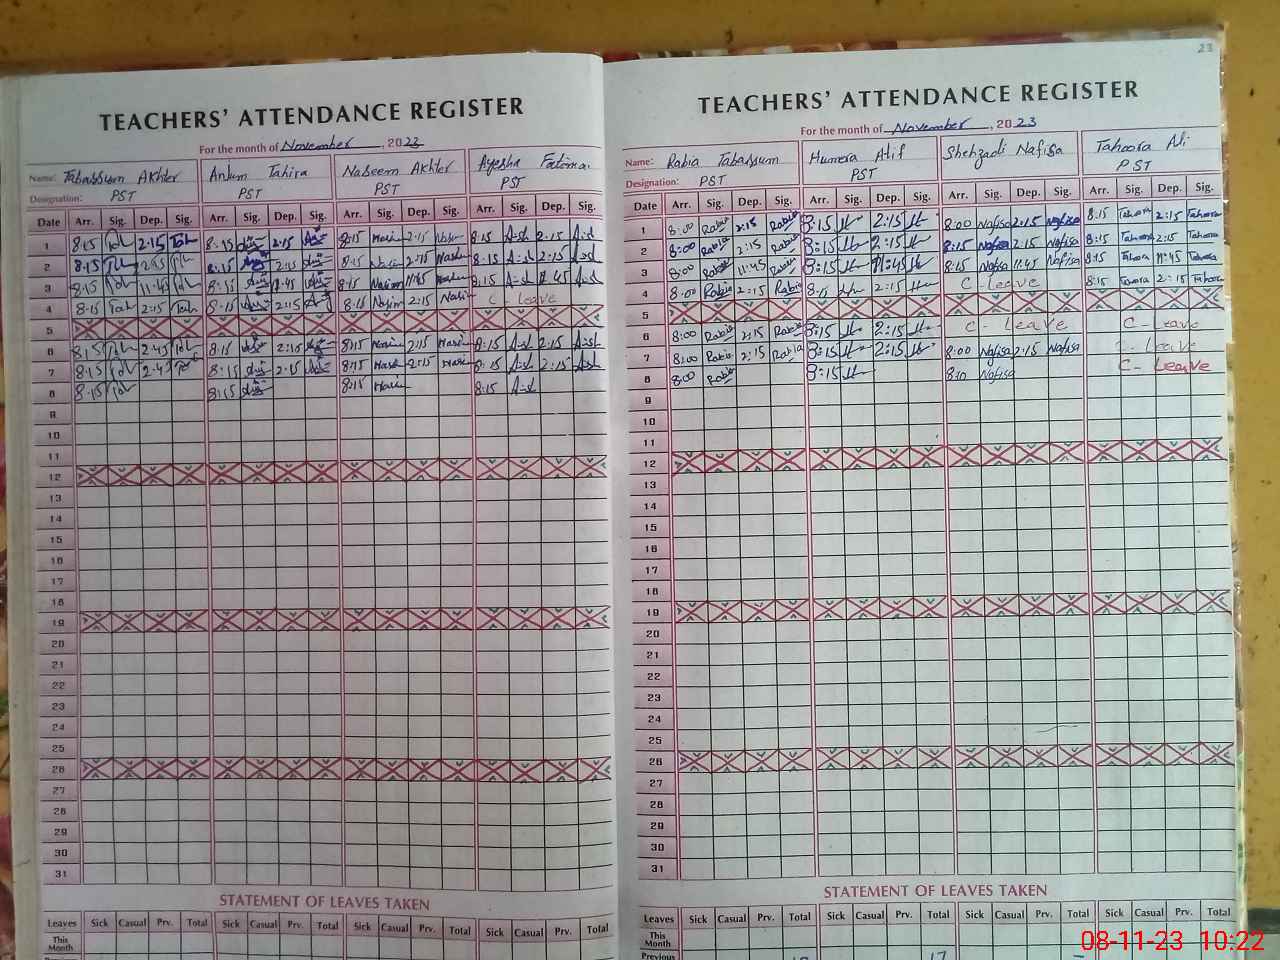 23
TEACHERS' ATTENDANCE REGISTER
For the month of November, 2023
Name: Tabassum Akhter Anjum Tahira Naseem Akhter Ayesha Fatima.
Designation: PST PST PST PST
Date Arr. Sig. Dep. Sig. Arr. Sig. Dep. Sig. Arr. Sig. Dep. Sig. Arr. Sig. Dep. Sig.
1 8:15 2:15 8:15 2:15 8:15 2:15 8:15 2:15
2 8:15 8:15 8:15 2:15 8:15 2:15
3 8:15 11:45 8:15 11:45 8:15 11:45 8:15 11:45
4 8:15 2:15 8:15 2:15 8:15 2:15 C - Leave
5
6 8:15 2:45 8:15 2:15 8:15 2:15 8:15 2:15
7 8:15 8:15 2:15 8:15 2:15 8:15 2:15
8 8:15 8:15 8:15 8:15
9
10
11
12
13
14
15
16
17
18
19
20
21
22
23
24
25
26
27
28
29
30
31
STATEMENT OF LEAVES TAKEN
Leaves Sick Casual Prv. Total Sick Casual Prv. Total Sick Casual Prv. Total Sick Casual Prv. Total
This Month
TEACHERS' ATTENDANCE REGISTER
For the month of November, 2023
Name: Rabia Tabassum Humera Atif Shehzadi Nafisa Tahoora Ali
Designation: PST PST PST
Date Arr. Sig. Dep. Sig. Arr. Sig. Dep. Sig. Arr. Sig. Dep. Sig. Arr. Sig. Dep. Sig.
1 8:00 Rabia 2:15 Rabia 8:15 2:15 8:00 Nafisa 2:15 Nafisa 8:15 Tahoora 2:15 Tahoora
2 8:00 Rabia 2:15 Rabia 8:15 2:15 8:15 Nafisa 2:15 Nafisa 8:15 Tahoora 2:15 Tahoora
3 8:00 Rabia 11:45 Rabia 8:15 11:45 8:15 Nafisa 11:45 Nafisa 8:15 Tahoora 11:45 Tahoora
4 8:00 Rabia 2:15 Rabia 8:15 2:15 C - Leave 8:15 Tahoora 2:15 Tahoora
5
6 8:00 Rabia 2:15 Rabia 8:15 2:15 C - Leave C - Leave
7 8:00 Rabia 2:15 Rabia 8:15 2:15 8:00 Nafisa 2:15 Nafisa C - Leave
8 8:00 Rabia 8:15 8:10 Nafisa C - Leave
9
10
11
12
13
14
15
16
17
18
19
20
21
22
23
24
25
26
27
28
29
30
31
STATEMENT OF LEAVES TAKEN
Leaves Sick Casual Prv. Total Sick Casual Prv. Total Sick Casual Prv. Total Sick Casual Prv. Total
This Month
Previous 17
08-11-23 10:22